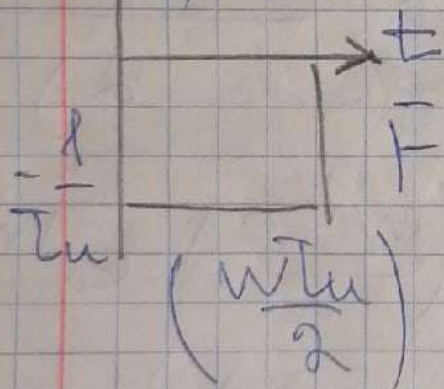 t
T
- 1/τu
(wτu/2)